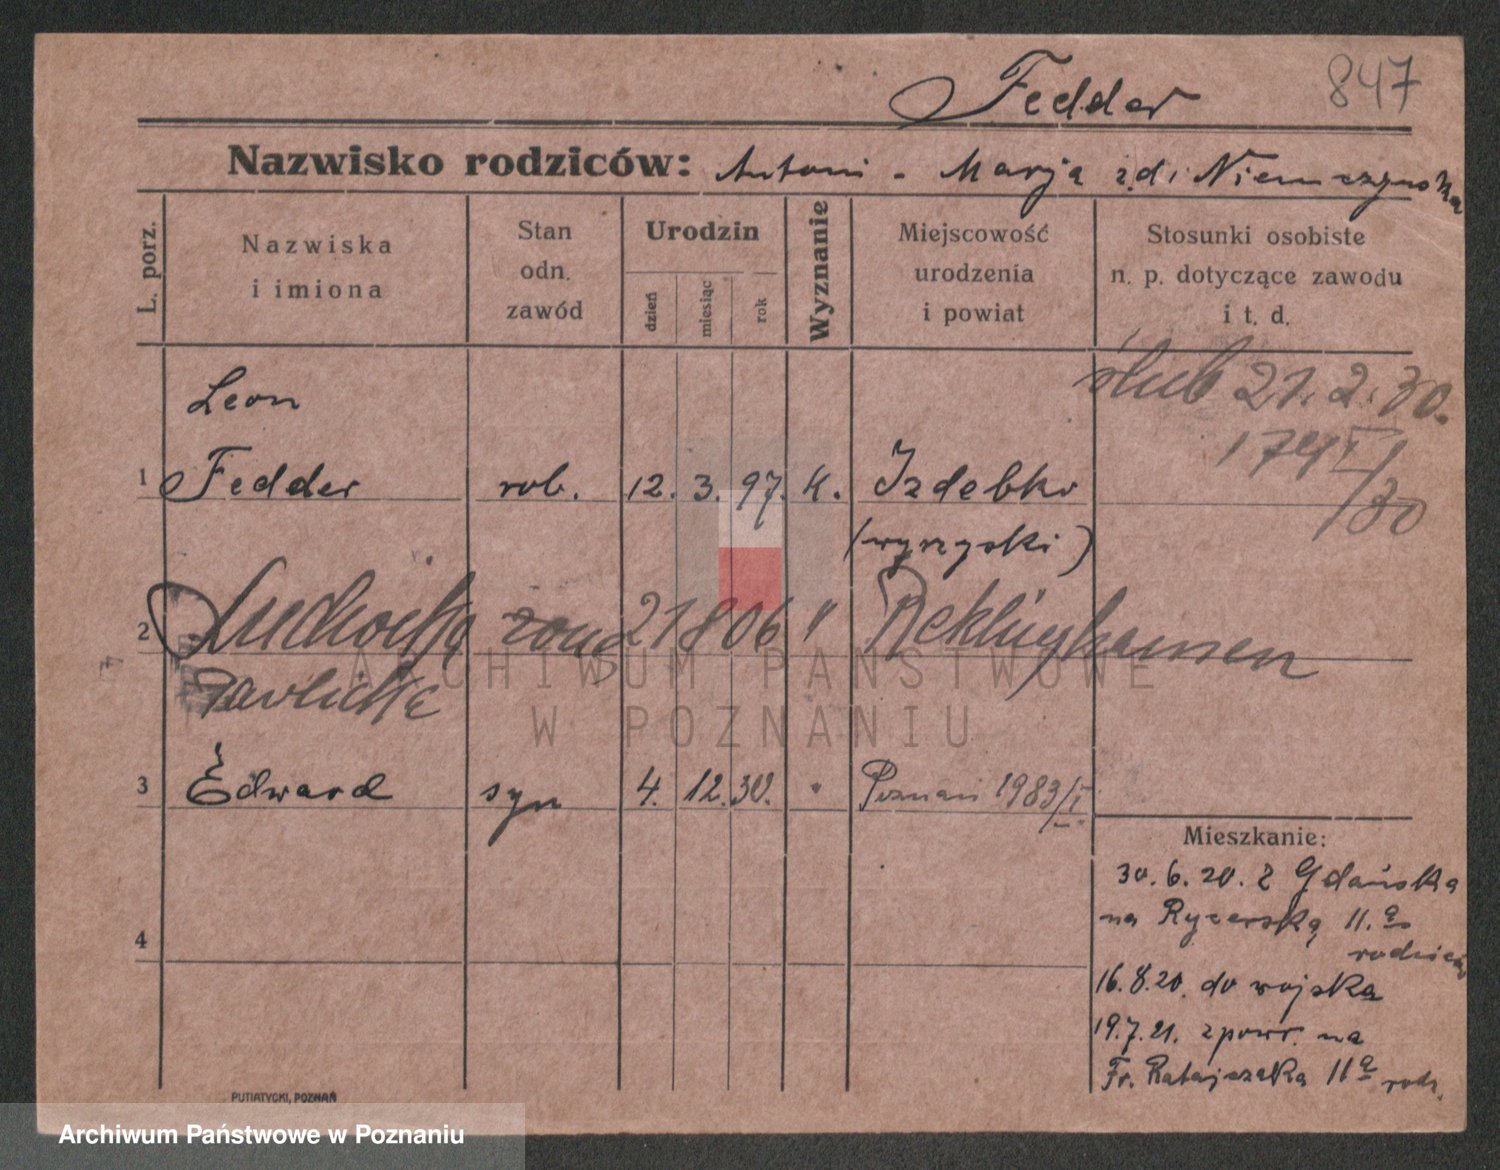 Fedder 847
Nazwisko rodziców: Antoni - Marja z d. Niemczynska
L. porz.
Nazwiska
i imiona
Stan
odn.
zawód
Urodzin
dzień
miesiąc
rok
Wyznanie
Miejscowość
urodzenia
i powiat
Stosunki osobiste
n. p. dotyczące zawodu
i t. d.
ślub 21.2.30.
Leon
1 Fedder rob. 12. 3. 97. K. Izdebko
(wyrzyski)
/30
2 21 8 06 " Reklinghausen
ARCHIWUM PAŃSTWOWE
W POZNANIU
3 Edward syn 4. 12. 30. " Poznań 1983/I.
Mieszkanie:
30.6.20. z Gdańska
na Rycerską 11.a
rodziców
4
16.8.20. do wojska
19.7.21. z powr. na
Fr. Ratajczaka 11a rodz.
PUTIATYCKI, POZNAŃ
Archiwum Państwowe w Poznaniu